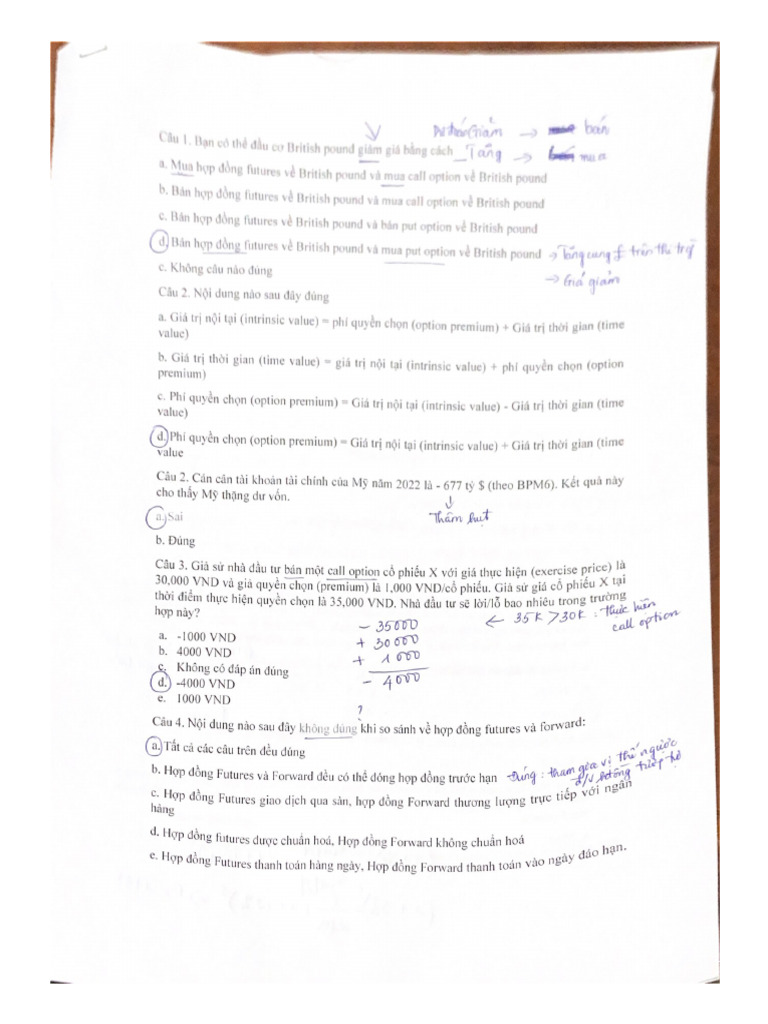 giảm → bán
Câu 1. Bạn có thể đầu cơ British pound giảm giá bằng cách _Tăng → mua
a. Mua hợp đồng futures về British pound và mua call option về British pound
b. Bán hợp đồng futures về British pound và mua call option về British pound
c. Bán hợp đồng futures về British pound và bán put option về British pound
d. Bán hợp đồng futures về British pound và mua put option về British pound → Tăng cung £ trên thị trg
→ Giá giảm
e. Không câu nào đúng
Câu 2. Nội dung nào sau đây đúng
a. Giá trị nội tại (intrinsic value) = phí quyền chọn (option premium) + Giá trị thời gian (time
value)
b. Giá trị thời gian (time value) = giá trị nội tại (intrinsic value) + phí quyền chọn (option
premium)
c. Phí quyền chọn (option premium) = Giá trị nội tại (intrinsic value) - Giá trị thời gian (time
value)
d. Phí quyền chọn (option premium) = Giá trị nội tại (intrinsic value) + Giá trị thời gian (time
value
Câu 2. Cán cân tài khoản tài chính của Mỹ năm 2022 là - 677 tỷ $ (theo BPM6). Kết quả này
cho thấy Mỹ thặng dư vốn.
↓
Thâm hụt
a. Sai
b. Đúng
Câu 3. Giả sử nhà đầu tư bán một call option cổ phiếu X với giá thực hiện (exercise price) là
30,000 VND và giá quyền chọn (premium) là 1,000 VND/cổ phiếu. Giả sử giá cổ phiếu X tại
thời điểm thực hiện quyền chọn là 35,000 VND. Nhà đầu tư sẽ lời/lỗ bao nhiêu trong trường
hợp này?
← 35k > 30k : thực hiện
call option
- 35000
+ 30000
+ 1000
- 4000
a. -1000 VND
b. 4000 VND
c. Không có đáp án đúng
d. -4000 VND
e. 1000 VND
?
Câu 4. Nội dung nào sau đây không đúng khi so sánh về hợp đồng futures và forward:
a. Tất cả các câu trên đều đúng
b. Hợp đồng Futures và Forward đều có thể đóng hợp đồng trước hạn Đúng : tham gia vị thế ngược
c. Hợp đồng Futures giao dịch qua sàn, hợp đồng Forward thương lượng trực tiếp với ngân
hàng
d. Hợp đồng futures được chuẩn hoá, Hợp đồng Forward không chuẩn hoá
e. Hợp đồng Futures thanh toán hàng ngày, Hợp đồng Forward thanh toán vào ngày đáo hạn.